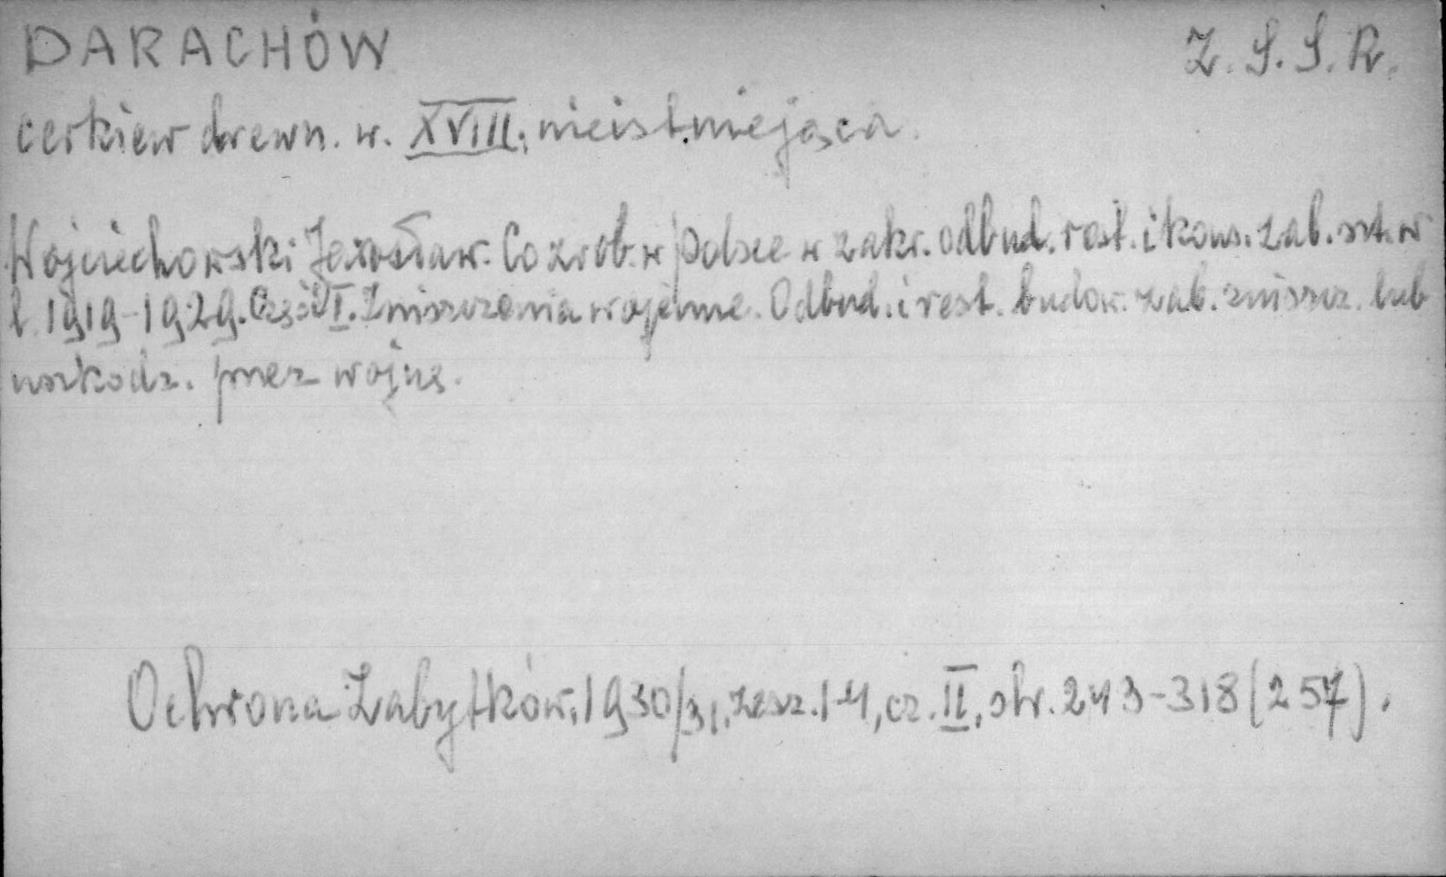 DARACHÓW Z.S.S.R.
cerkiew drewn. w. XVIII; nieistniejąca.
Wojciechowski Jarosław. Co zrob. w Polsce w zakr. odbud. rest. i kons. zab. szt. w
l. 1919-1929. Część I. Zniszczenia wojenne. Odbud. i rest. budow. zab. zniszcz. lub
uszkodz. przez wojnę.
Ochrona Zabytków, 1930/31, zesz. 1-4, cz. II, str. 243-318 (257).